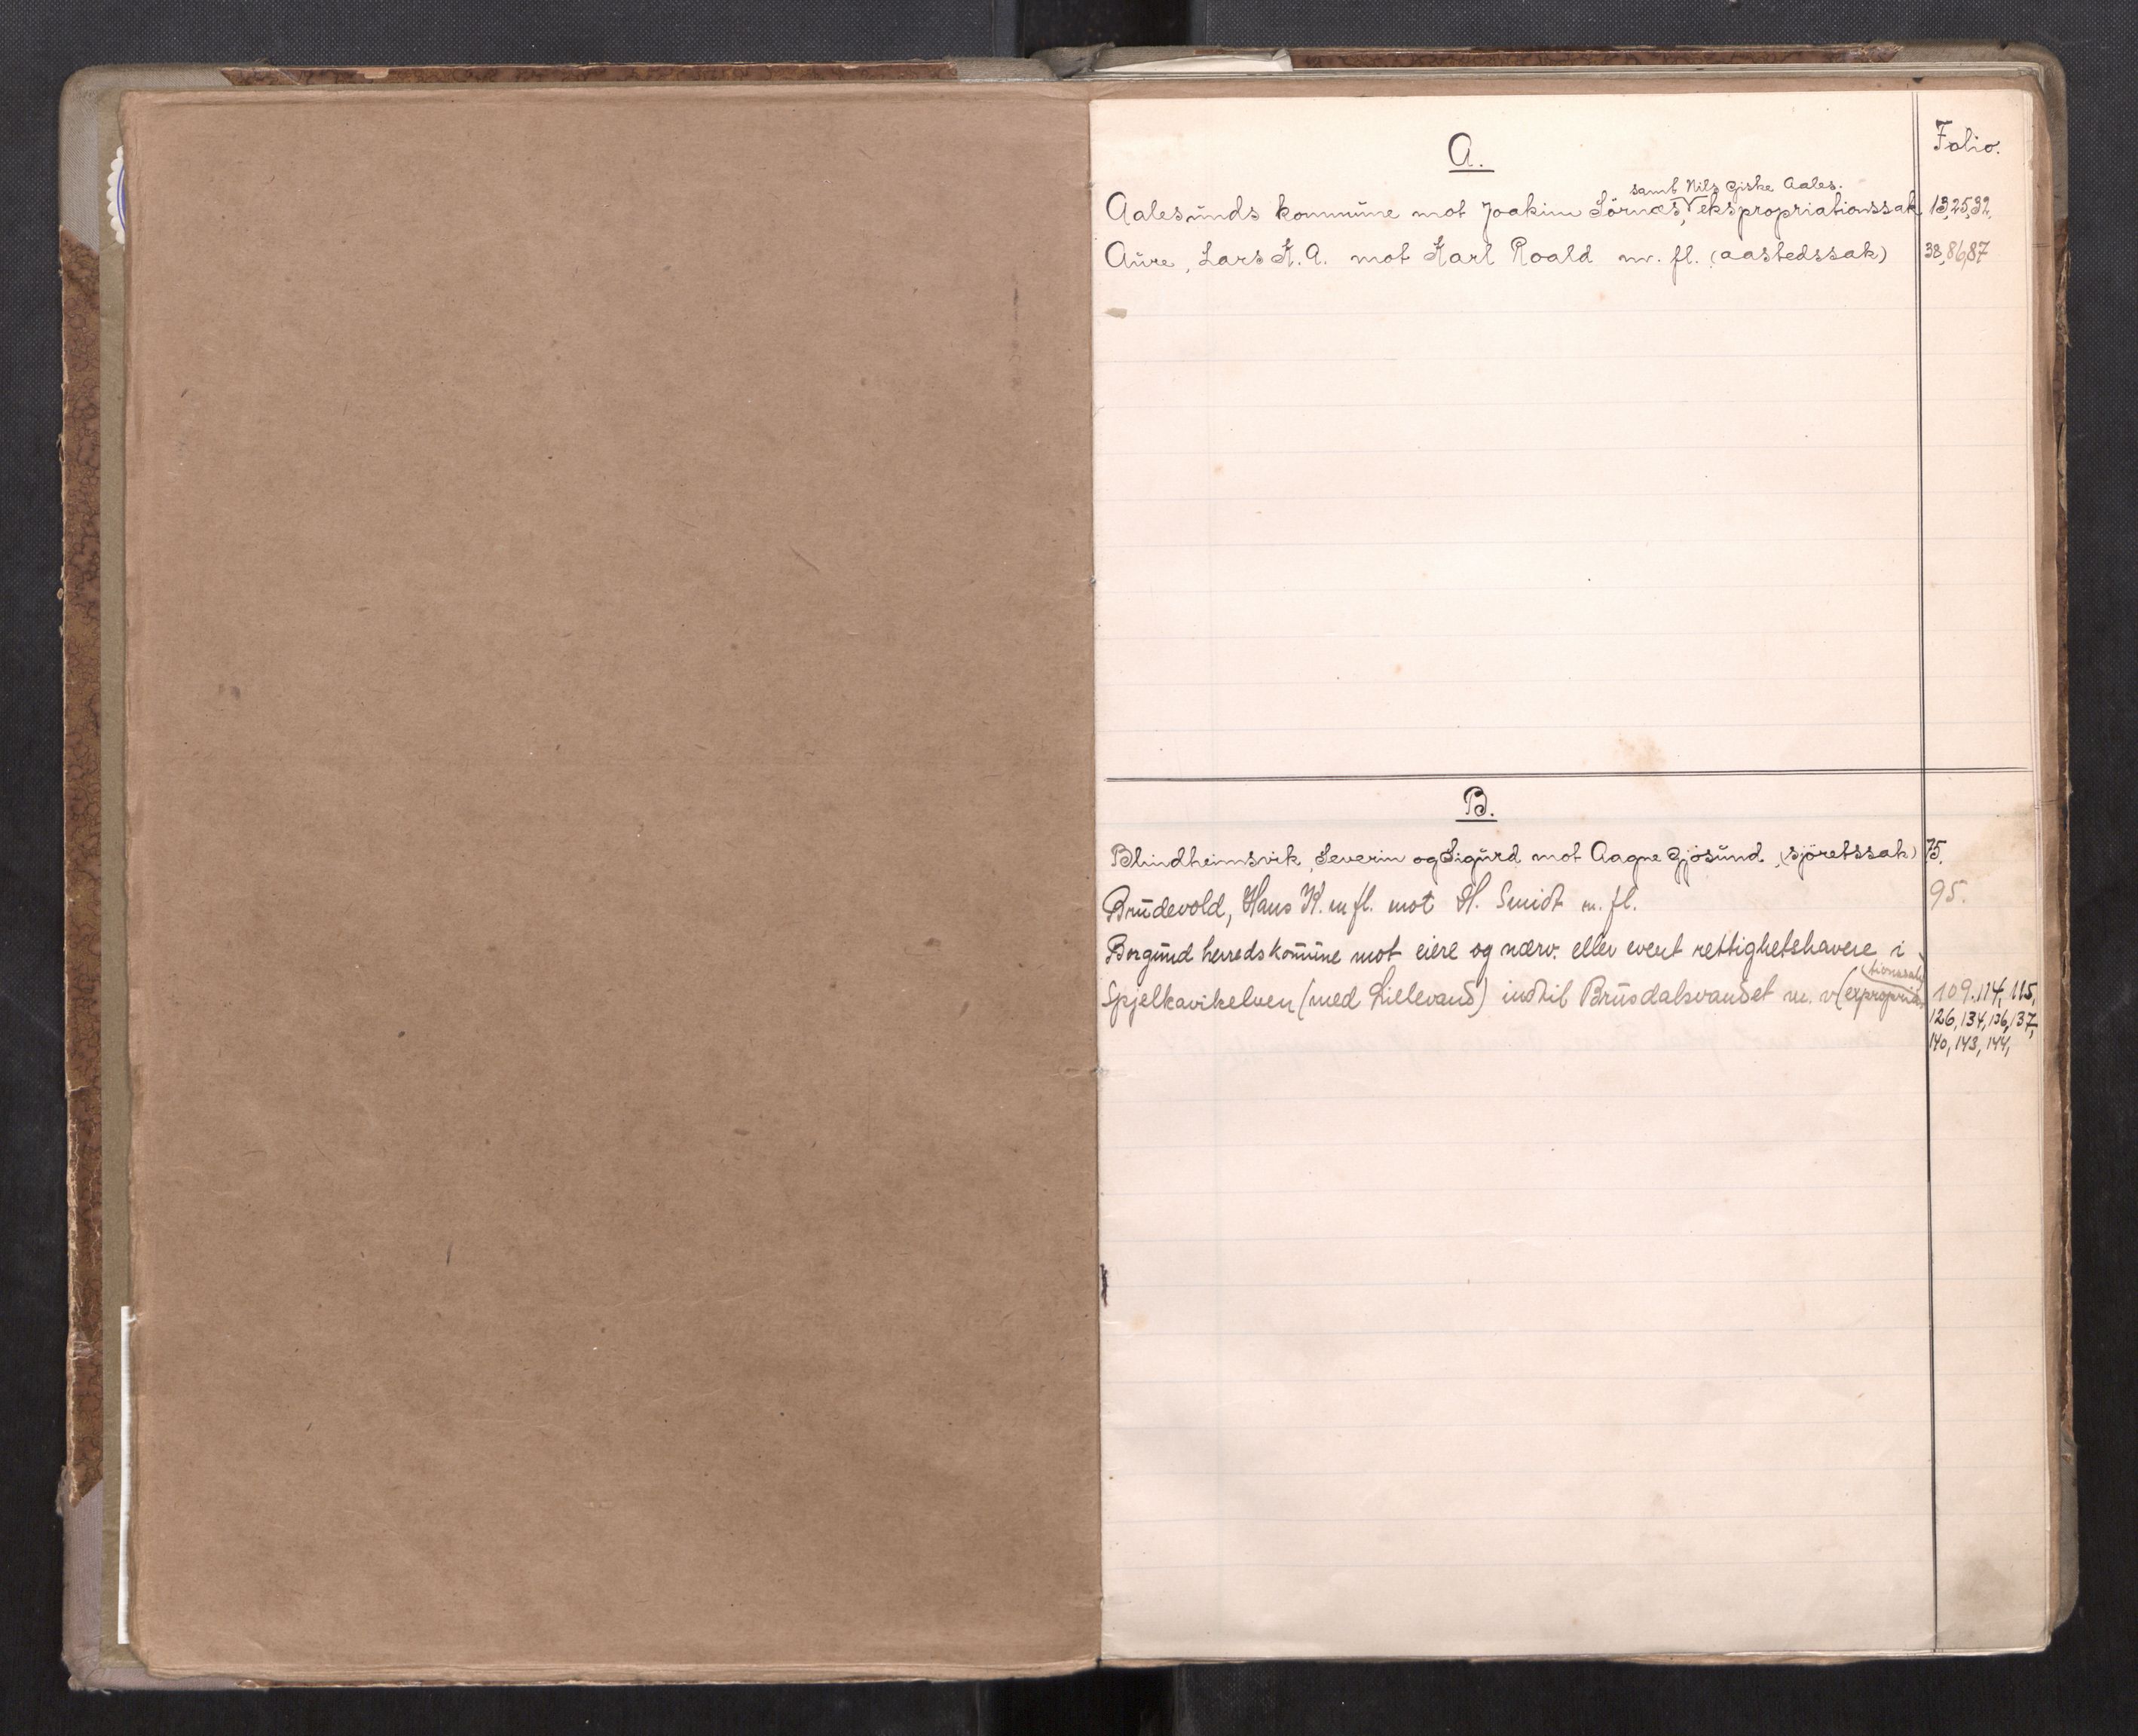 A.
Folio.
samt Nils Giske Aales.
Aalesunds kommune mot Joakim Sörnæs, ekspropriationssak 13,25,32,
Aure, Lars K. A. mot Karl Roald m. fl. (aastedssak) 38,86,87
B.
Blindheimsvik, Severin og Sigurd mot Aagne Gjösund. (sjöretssak) 75.
Brudevold, Hans K. m fl. mot H. Smidt m. fl. 95.
Borgund herredskommune mot eiere og nærv. eller event rettighetshavere i
Spjelkavikelven (med Lillevand) indtil Brusdalsvandet m. v (expropria- 109.114, 115,
tionssak)
126, 134, 136, 137,
140, 143, 144,